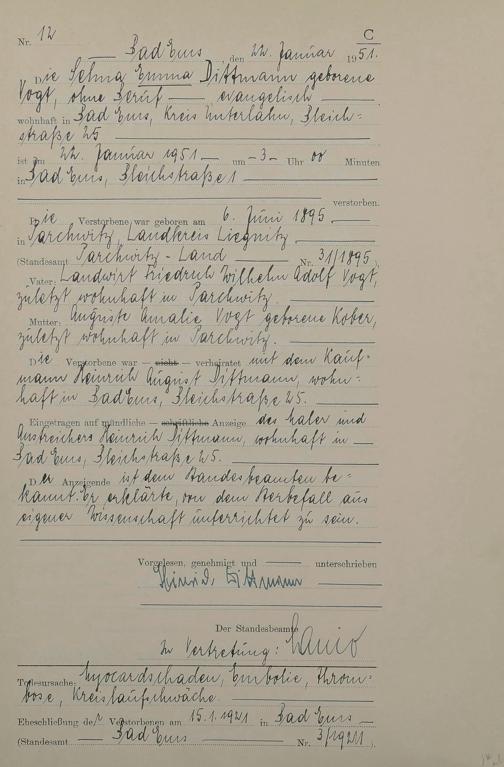 Nr. 12 C
Bad Ems, den 22. Januar 1951.
Die Selma Emma Dittmann geborene
Vogt, ohne Beruf — evangelisch —
wohnhaft in Bad Ems, Kreis Unterlahn, Bleich=
straße 25
ist am 22. Januar 1951 — um — 3 — Uhr 00 Minuten
in Bad Ems, Bleichstraße 1
verstorben.
Die Verstorbene war geboren am 6. Juni 1895
in Parchwitz, Landkreis Liegnitz
(Standesamt Parchwitz - Land Nr. 31/1895)
Vater: Landwirt Friedrich Wilhelm Adolf Vogt,
zuletzt wohnhaft in Parchwitz.
Mutter: Auguste Amalie Vogt geborene Kober,
zuletzt wohnhaft in Parchwitz.
Die Verstorbene war — nicht — verheiratet mit dem Kauf=
mann Heinrich August Dittmann, wohn=
haft in Bad Ems, Bleichstraße 25.
Eingetragen auf mündliche — schriftliche Anzeige des Maler und
Anstreichers Heinrich Dittmann, wohnhaft in
Bad Ems, Bleichstraße 25.
Der Anzeigende ist dem Standesbeamten be=
kannt. Er erklärte, von dem Sterbefall aus
eigener Wissenschaft unterrichtet zu sein.
Vorgelesen, genehmigt und unterschrieben
Heinrich Dittmann
Der Standesbeamte
In Vertretung:
Todesursache: Myocardschaden, Embolie, Throm=
bose, Kreislaufschwäche.
Eheschließung der Verstorbenen am 15.1.1921 in Bad Ems
(Standesamt Bad Ems Nr. 3/1921)